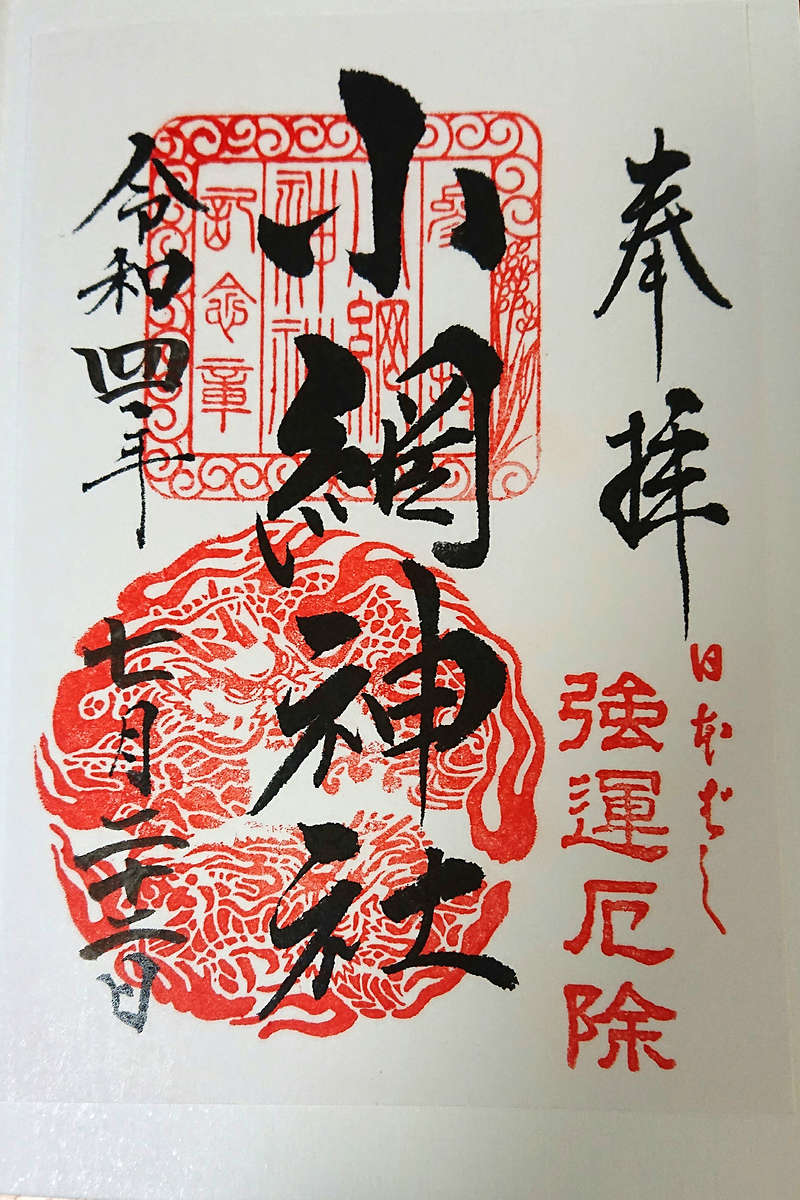 奉拝
日本ばし
強運厄除
小網神社
参拝
小網
神社
記念章
令和四年
七月二十二日